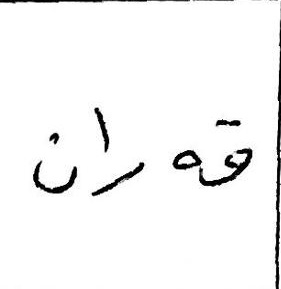 قه ران